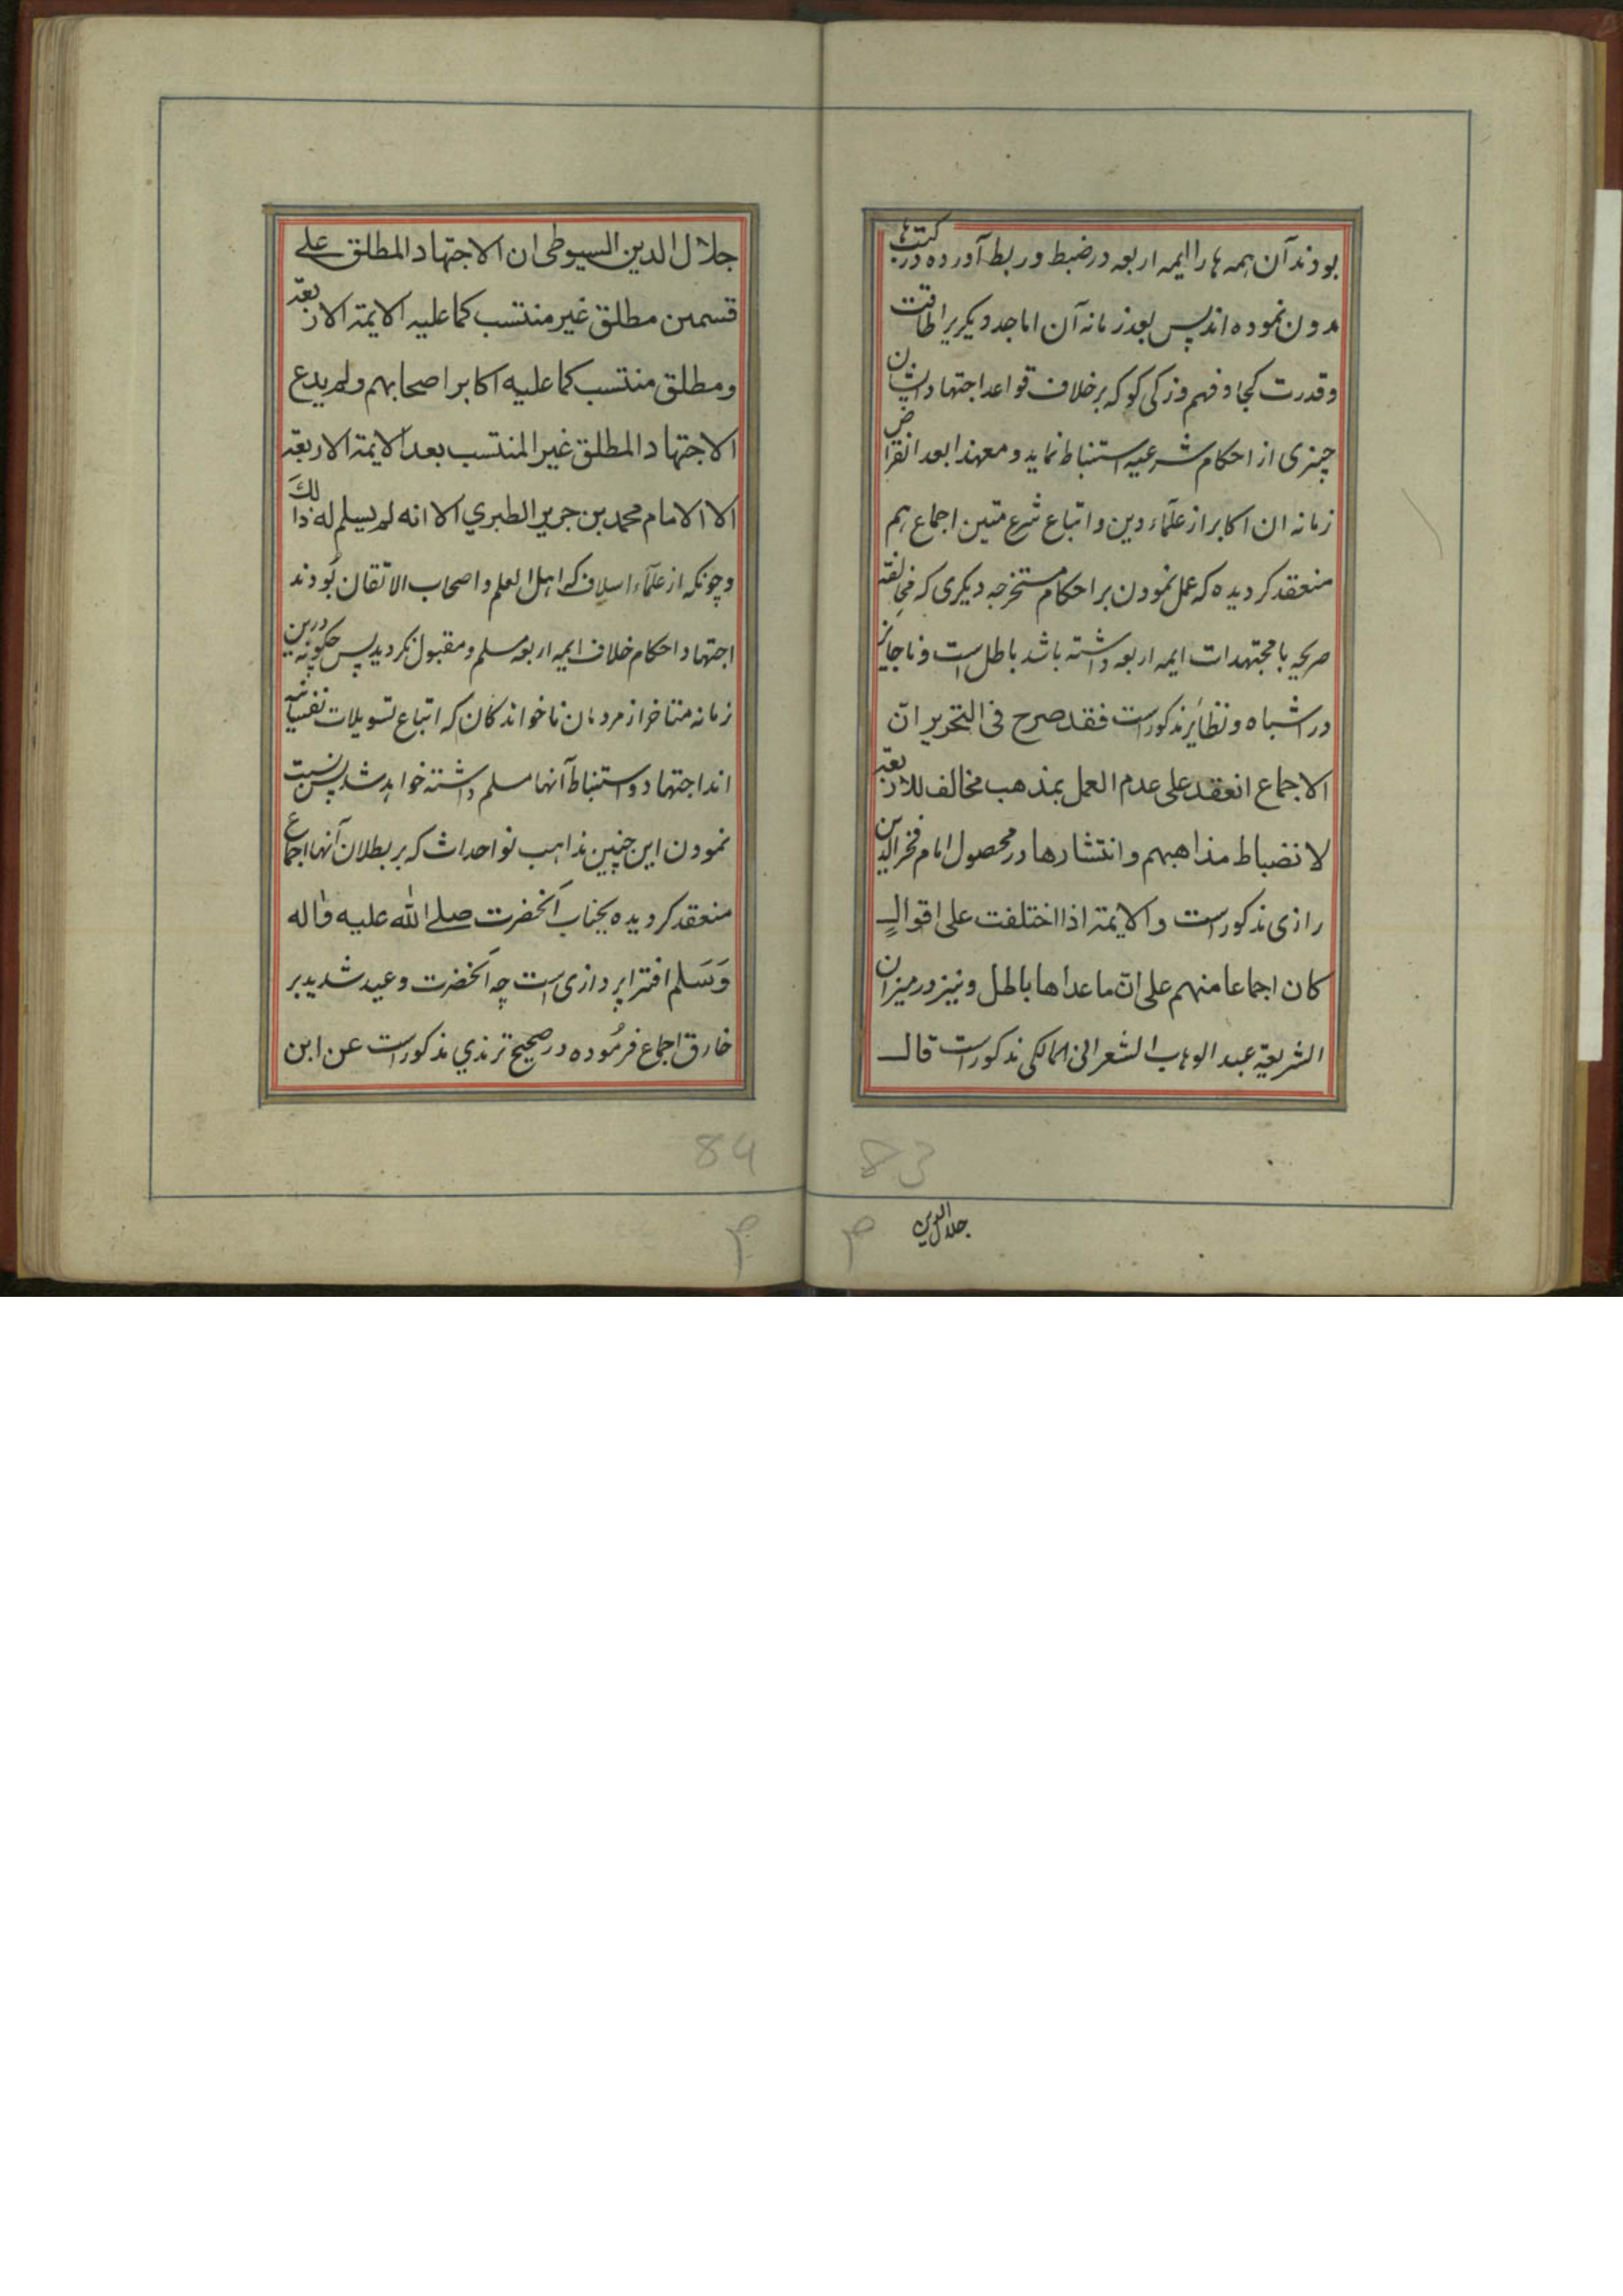 بودند آن همه ها را ایمه اربعه در ضبط و ربط آورده در کتب ها
مدون نموده اند پس بعد زمانه آن اماجد دیکریرا طاقت
و قدرت کجا و فهم و زکی کو که بر خلاف قواعد اجتهاد ایشان
چیزی از احکام شرعیه استنباط نماید و معهذا بعد انقراض
زمانه ان اکابر از علماء دین و اتباع شرع متین اجماع هم
منعقد کردیده که عمل نمودن بر احکام مستخرجه دیکری که مخالفة
صریحه با مجتهدات ایمه اربعه داشته باشد باطل است و ناجایز
در اشباه و نظائر مذکور است فقد صرح فی التحریر انّ
الاجماع انعقد علی عدم العمل بمذهب مخالف للاربعة
لانضباط مذاهبهم وانتشارها در محصول امام فخر الدین
رازی مذکور است والایمة اذا اختلفت علی اقوالٍ
کان اجماعا منهم علی انّ ما عداها باطل و نیز در میزان
الشریعة عبد الوهاب الشعرانی المالکی مذکور است قال
83
جلال الدین
جلال الدین السیوطی ان الاجتهاد المطلق علی
قسمین مطلق غیر منتسب کما علیه الایمة الاربعة
ومطلق منتسب کما علیه اکابر اصحابهم ولم یدع
الاجتهاد المطلق غیر المنتسب بعد الایمة الاربعة
الا الامام محمد بن جریر الطبري الا انه لم یسلم له ذالك
و چونکه از علماء اسلاف که اهل العلم و اصحاب الاتقان بودند
اجتهاد احکام خلاف ایمه اربعه مسلم و مقبول نکردید پس چکونه درین
زمانه متاخر از مردمان ناخواندکان که اتباع تسویلات نفسانیه
اند اجتهاد و استنباط آنها مسلم داشته خواهد شد پس نسبت
نمودن این چنین مذاهب نو احداث که بر بطلان آنها اجماع
منعقد کردیده بجناب آنحضرت صلی الله علیه واله
وَسَلم افترا پردازی است چه آنحضرت وعید شدید بر
خارق اجماع فرمُوده در صحیح ترمذي مذکور است عن ابن
84